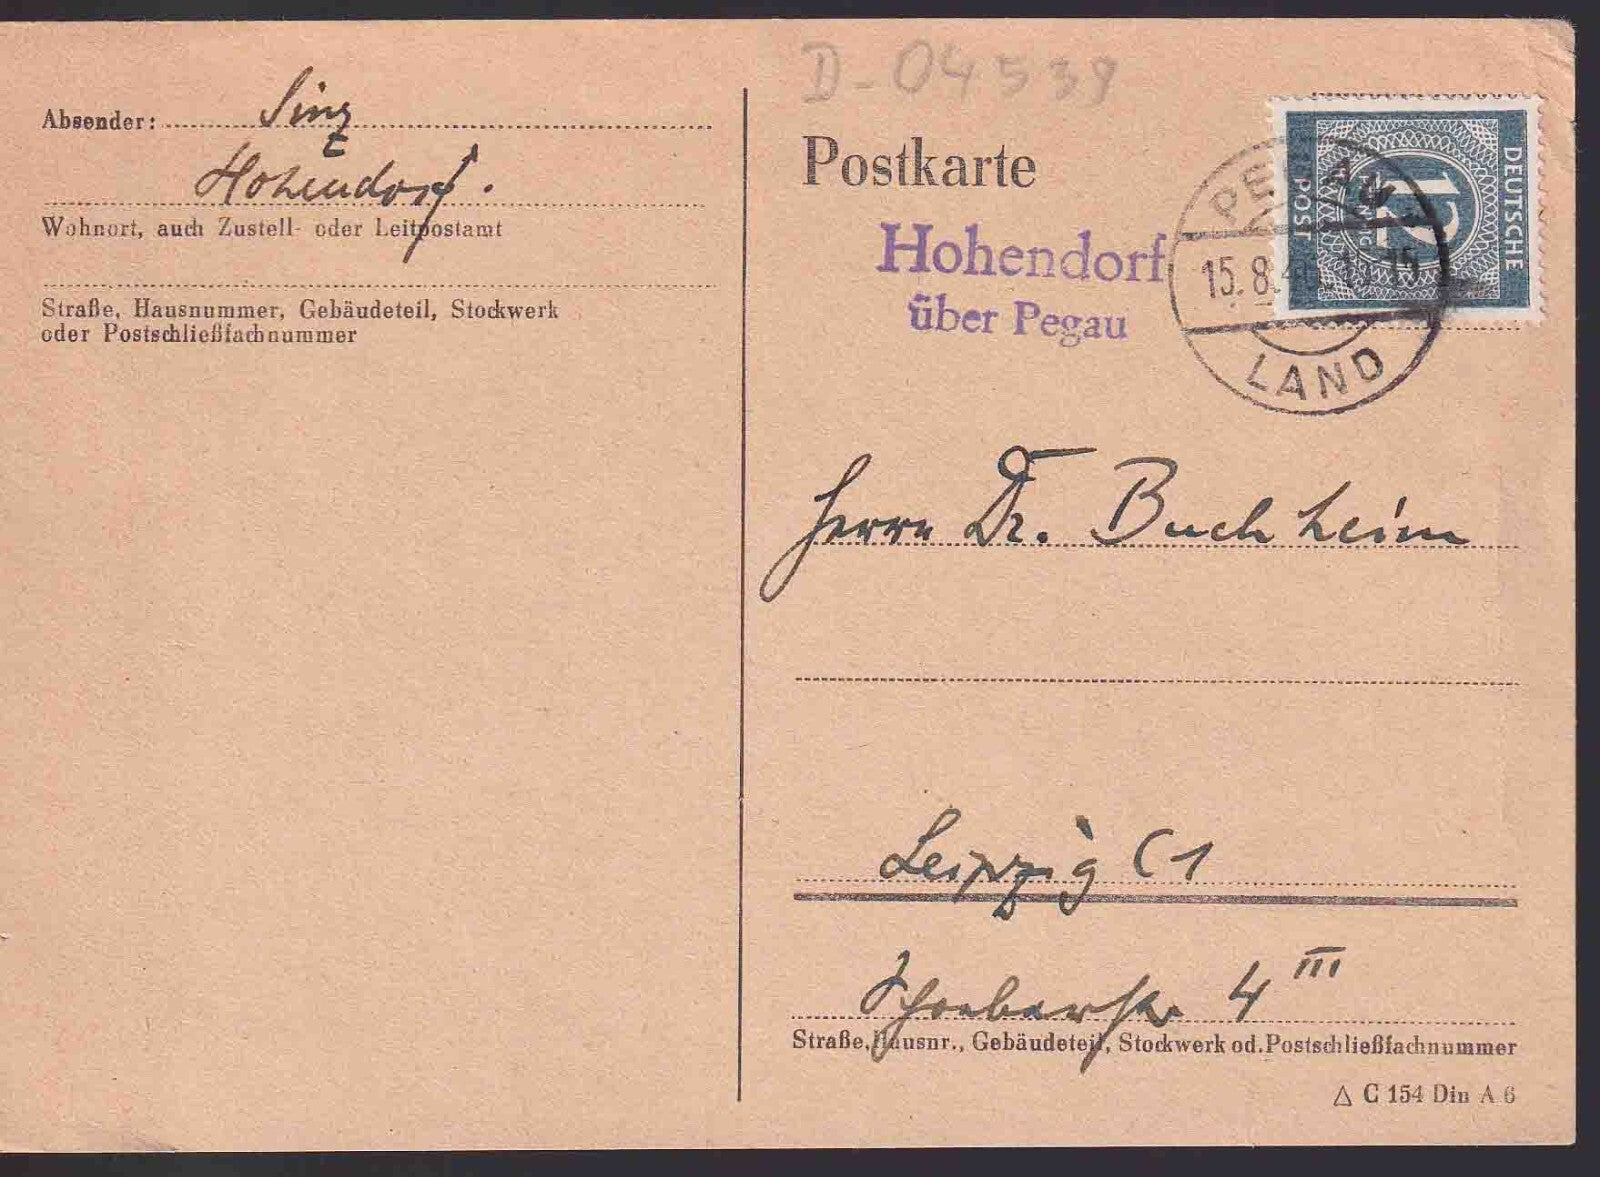 Absender: Sinz
Hohendorf.
Wohnort, auch Zustell- oder Leitpostamt
Straße, Hausnummer, Gebäudeteil, Stockwerk
oder Postschließfachnummer
D-04539
Postkarte
Hohendorf
über Pegau
DEUTSCHE
12
POST
PEGAU
15.8.
LAND
Herrn Dr. Buchheim
Leipzig C1
4 III
Straße, Hausnr., Gebäudeteil, Stockwerk od. Postschließfachnummer
△ C 154 Din A 6